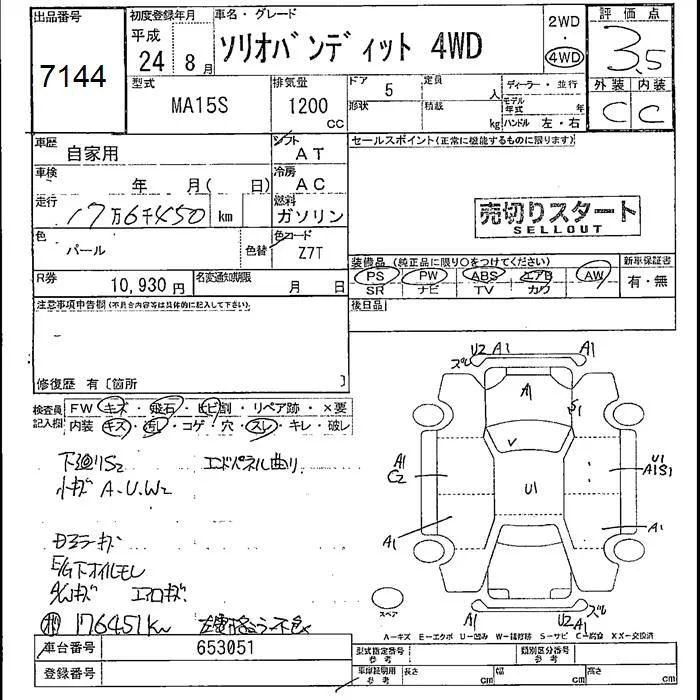 出品番号
7144
初度登録年月
平成
24 8月
車名・グレード
ソリオバンディット 4WD
2WD
・
4WD
評価点
3.5
外装 内装
C C
型式
MA15S
排気量
1200
CC
ドア
5
形状
定員
人
積載
kg
ディーラー・並行
モデル年式 年
ハンドル 左・右
車歴
自家用
シフト
AT
車検
年 月( 日)
冷房
AC
走行
17万6千450 km
燃料
ガソリン
色
パール
色替
色コード
Z7T
R券
10,930 円
名変通知期限
月 日
セールスポイント(正常に機能するものに限ります)
売切りスタート
SELLOUT
装備品 (純正品に限り○をつけてください)
PS PW ABS エアB AW
SR ナビ TV カワ
新車保証書
有・無
後日品
注意事項申告欄(不具合内容等は具体的に記入して下さい)
修復歴 有〔箇所 〕
検査員記入欄
FW キズ・飛石・ヒビ割・リペア跡・×要
内装 キズ・汚レ・コゲ・穴・スレ・キレ・破レ
下廻りS2 エンドパネル曲り
小キズ A.U.W2
E/G下オイルモレ
A/Wキズ エアロキズ
176451km
ズレ U2 A1 A1
A1
S1
V
A1
C2
U1
U1
A1S1
A1
A1
A1 U2 ズレ
スペア
A―キズ E―エクボ U―凹み W―補修跡 S―サビ C―腐食 XX―交換済
車台番号
653051
登録番号
型式指定番号
参考
類別区分番号
参考
車庫証明用
参考
長さ cm
幅 cm
高さ cm